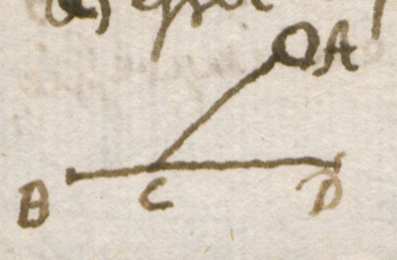 A
B C D